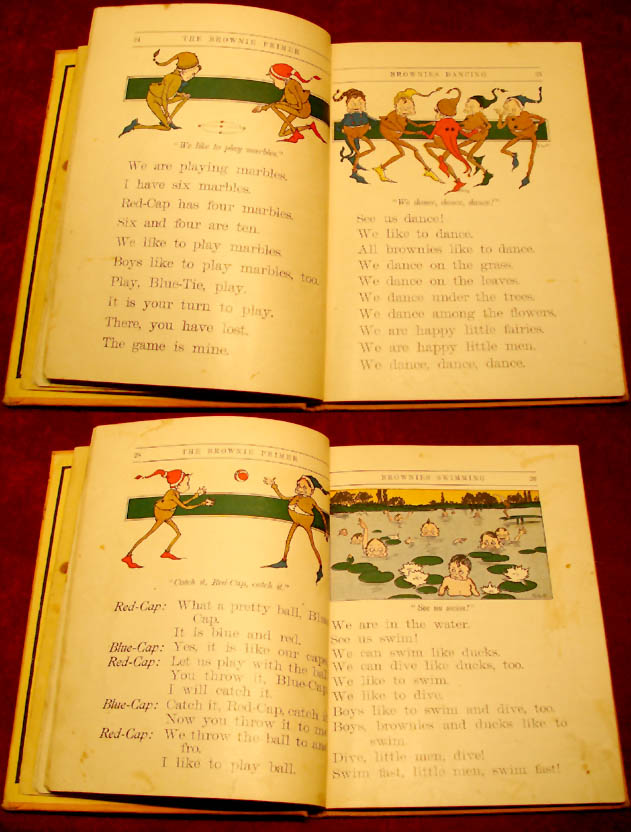 24 THE BROWNIE PRIMER
"We like to play marbles."
We are playing marbles.
I have six marbles.
Red-Cap has four marbles.
Six and four are ten.
We like to play marbles.
Boys like to play marbles, too.
Play, Blue-Tie, play.
It is your turn to play.
There, you have lost.
The game is mine.
BROWNIES DANCING 25
"We dance, dance, dance!"
See us dance!
We like to dance.
All brownies like to dance.
We dance on the grass.
We dance on the leaves.
We dance under the trees.
We dance among the flowers.
We are happy little fairies.
We are happy little men.
We dance, dance, dance.
28 THE BROWNIE PRIMER
"Catch it, Red-Cap, catch it."
Red-Cap: What a pretty ball, Blue-
Cap.
It is blue and red.
Blue-Cap: Yes, it is like our caps.
Red-Cap: Let us play with the ball.
You throw it, Blue-Cap.
I will catch it.
Blue-Cap: Catch it, Red-Cap, catch it.
Now you throw it to me.
Red-Cap: We throw the ball to and
fro.
I like to play ball.
BROWNIES SWIMMING 29
"See us swim!"
We are in the water.
See us swim!
We can swim like ducks.
We can dive like ducks, too.
We like to swim.
We like to dive.
Boys like to swim and dive, too.
Boys, brownies and ducks like to
swim.
Dive, little men, dive!
Swim fast, little men, swim fast!